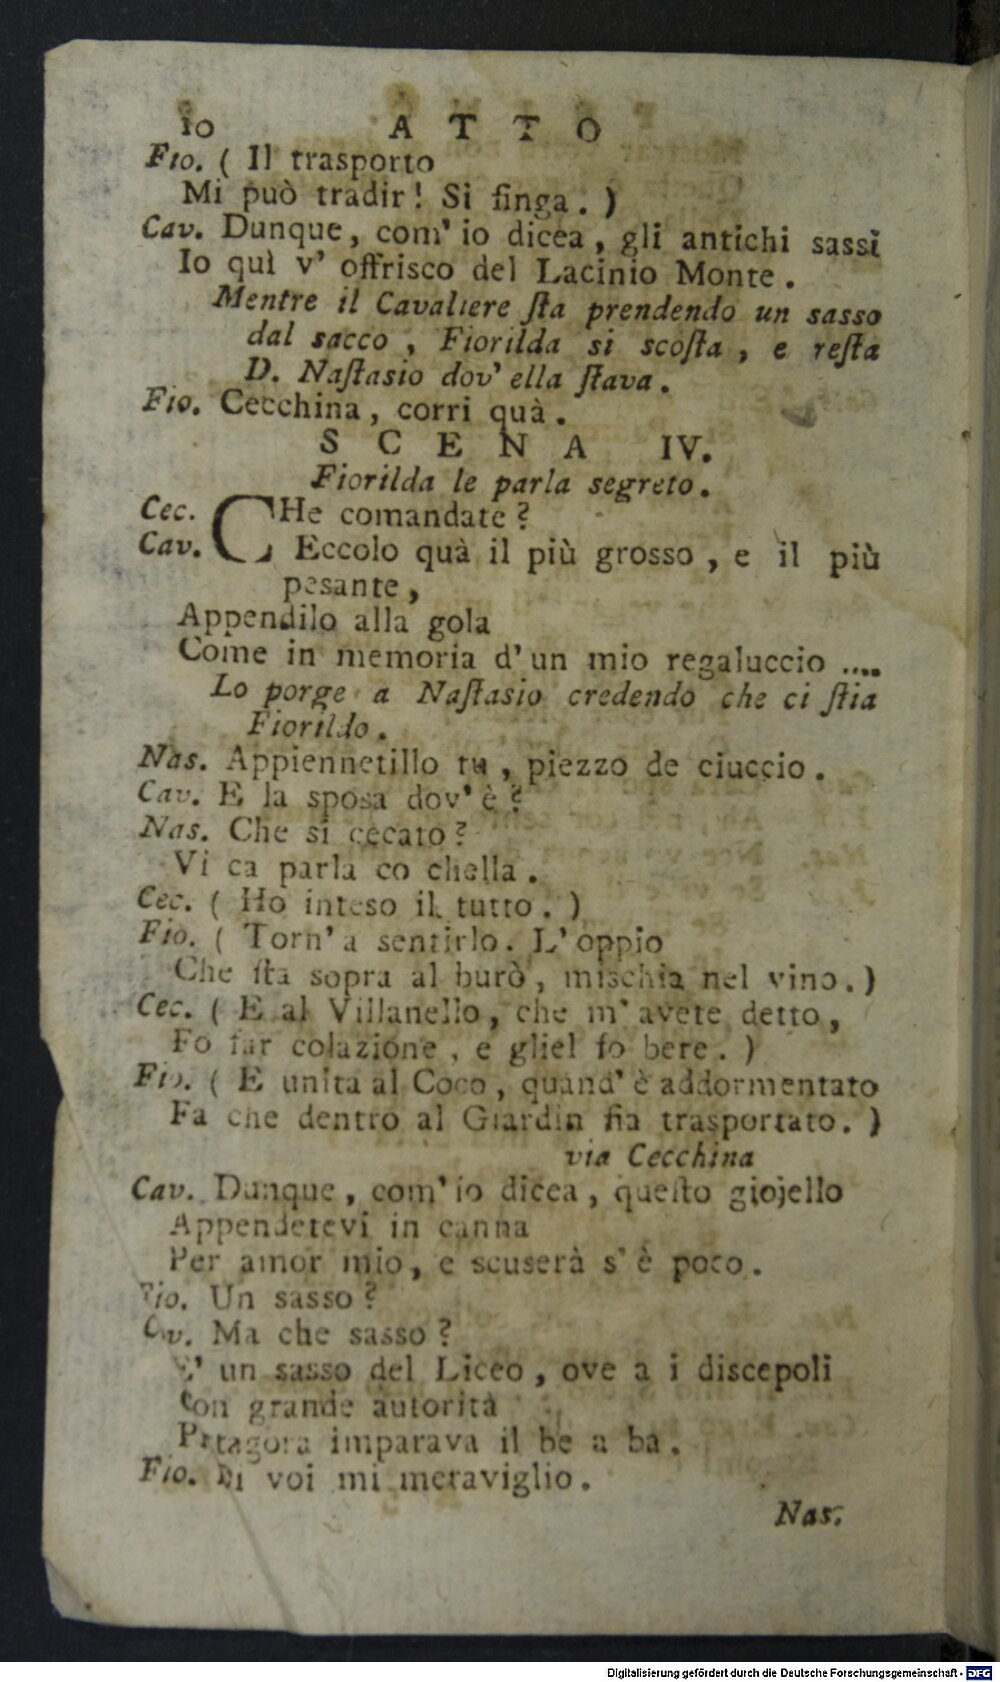 10 ATTO
Fio. ( Il trasporto
Mi può tradir! Si finga. )
Cav. Dunque, com' io dicea, gli antichi sassi
Io quì v' offrisco del Lacinio Monte.
Mentre il Cavaliere ſta prendendo un sasso
dal sacco, Fiorilda si scoſta, e reſta
D. Naſtasio dov' ella ſtava.
Fio. Cecchina, corri quà.
SCENA IV.
Fiorilda le parla segreto.
Cec. CHe comandate?
Cav. Eccolo quà il più grosso, e il più
pesante,
Appendilo alla gola
Come in memoria d' un mio regaluccio ....
Lo porge a Naſtasio credendo che ci ſtia
Fiorildo.
Nas. Appiennetillo tu, piezzo de ciuccio.
Cav. E la sposa dov' è?
Nas. Che si cecato?
Vi ca parla co chella.
Cec. ( Ho inteso il tutto. )
Fio. ( Torn' a sentirlo. L' oppio
Che ſta sopra al burò, mischia nel vino. )
Cec. ( E al Villanello, che m' avete detto,
Fo far colazione, e gliel fo bere. )
Fio. ( E unita al Coco, quand' è addormentato
Fa che dentro al Giardin fia trasportato. )
via Cecchina
Cav. Dunque, com' io dicea, queſto giojello
Appendetevi in canna
Per amor mio, e scuserà s' è poco.
Fio. Un sasso?
Cav. Ma che sasso?
E' un sasso del Liceo, ove a i discepoli
Con grande autorità
Pitagora imparava il be a ba.
Fio. Di voi mi meraviglio.
Nas.
Digitalisierung gefördert durch die Deutsche Forschungsgemeinschaft - DFG